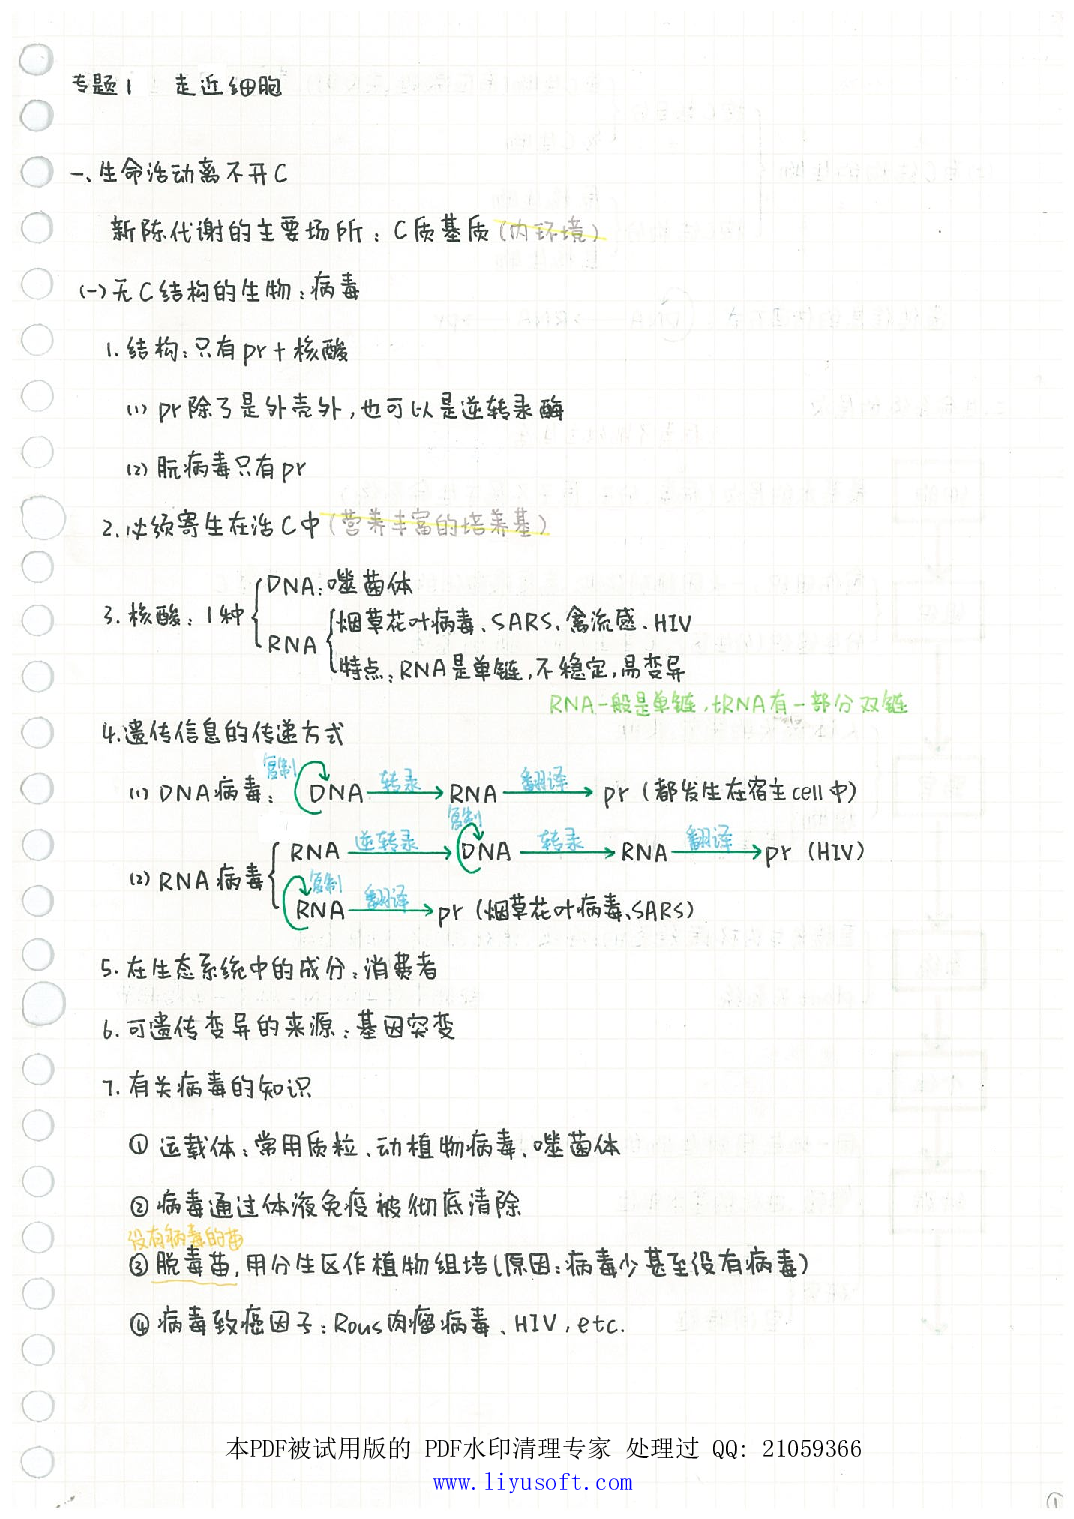 专题1 走近细胞
一、生命活动离不开C
新陈代谢的主要场所：C质基质(内环境)
(一)无C结构的生物：病毒
1.结构：只有pr+核酸
(1) pr除了是外壳外,也可以是逆转录酶
(2) 朊病毒只有pr
2.必须寄生在活C中(营养丰富的培养基)
3.核酸：1种
DNA：噬菌体
RNA
烟草花叶病毒、SARS、禽流感、HIV
特点：RNA是单链,不稳定,易变异
RNA一般是单链,tRNA有一部分双链
4.遗传信息的传递方式
(1) DNA病毒： 复制 DNA 转录 RNA 翻译 pr (都发生在宿主cell中)
(2) RNA病毒
RNA 逆转录 复制 DNA 转录 RNA 翻译 pr (HIV)
复制 RNA 翻译 pr (烟草花叶病毒、SARS)
5.在生态系统中的成分：消费者
6.可遗传变异的来源：基因突变
7.有关病毒的知识
① 运载体：常用质粒、动植物病毒、噬菌体
② 病毒通过体液免疫被彻底清除
没有病毒的苗
③ 脱毒苗,用分生区作植物组培(原因：病毒少甚至没有病毒)
④ 病毒致癌因子：Rous肉瘤病毒、HIV,etc.
本PDF被试用版的 PDF水印清理专家 处理过 QQ: 21059366
www.liyusoft.com
①